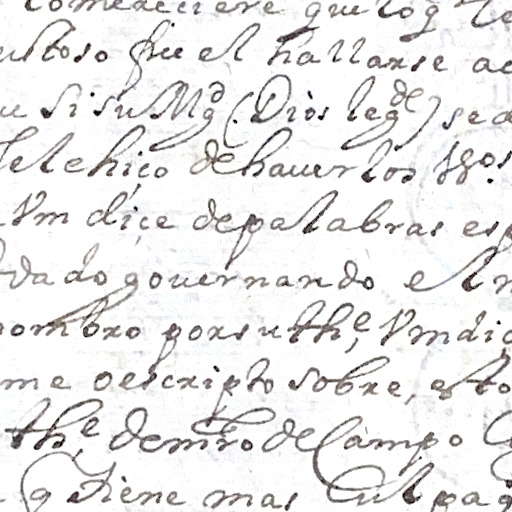 comereciere que loq le
ustoso fue el hallarse ac
u si su Mgd. (Dios legde) se a
le hiço de hauerlos Vsos
Vm diçe de palabras esp
dado gouernando el n
nombro por su the, Vm diç
me o escripto sobre, esto
the, de mro de Campo
q tiene mas Culpa q